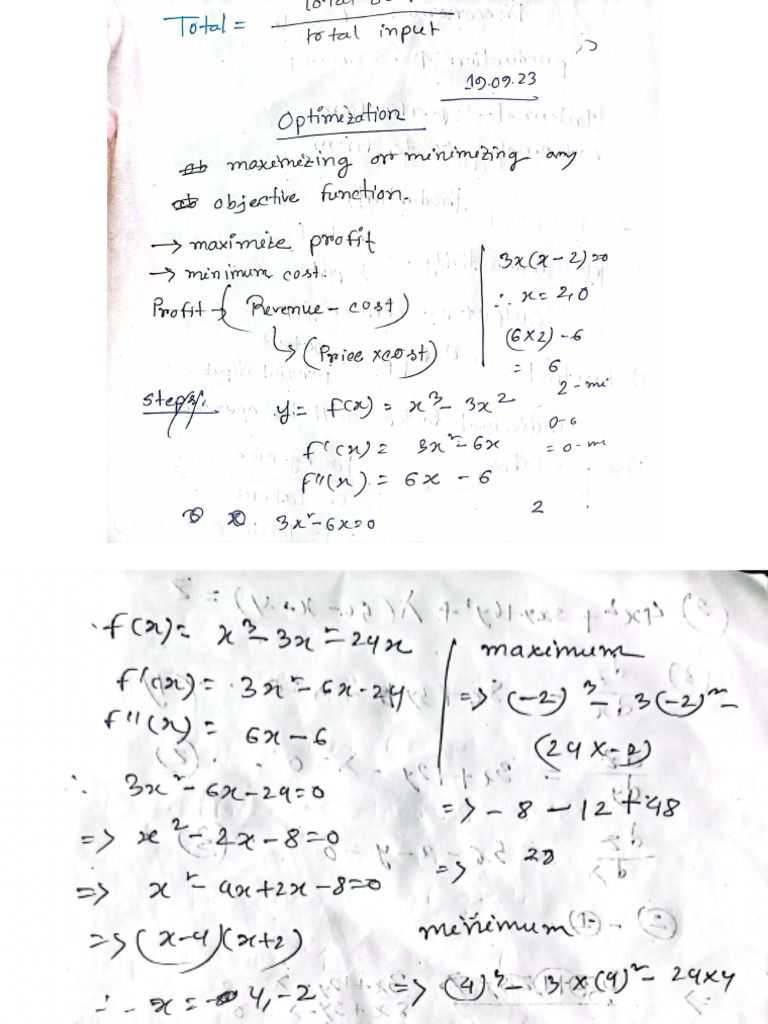 Total =
total input
19.09.23
Optimization
maximizing or minimizing any
objective function.
→ maximize profit
→ minimum cost.
Profit → (Revenue - cost)
↳ (Price x cost)
3x(x - 2) = 0
∴ x = 2, 0
(6x2) - 6
= 6
2 - mi
0 - 6
= 0 - m
Steps:
y = f(x) = x³ - 3x²
f'(x) = 3x² - 6x
f''(x) = 6x - 6
3x² - 6x = 0
2
f(x) = x³ - 3x² - 24x
f'(x) = 3x² - 6x - 24
f''(x) = 6x - 6
∴ 3x² - 6x - 24 = 0
=> x² - 2x - 8 = 0
=> x² - 4x + 2x - 8 = 0
=> (x-4)(x+2)
∴ x = 4, -2
maximum
=> (-2)³ - 3(-2)² -
(24 x -2)
=> - 8 - 12 + 48
=> 28
minimum
=> (4)³ - 3 x (4)² - 24x4